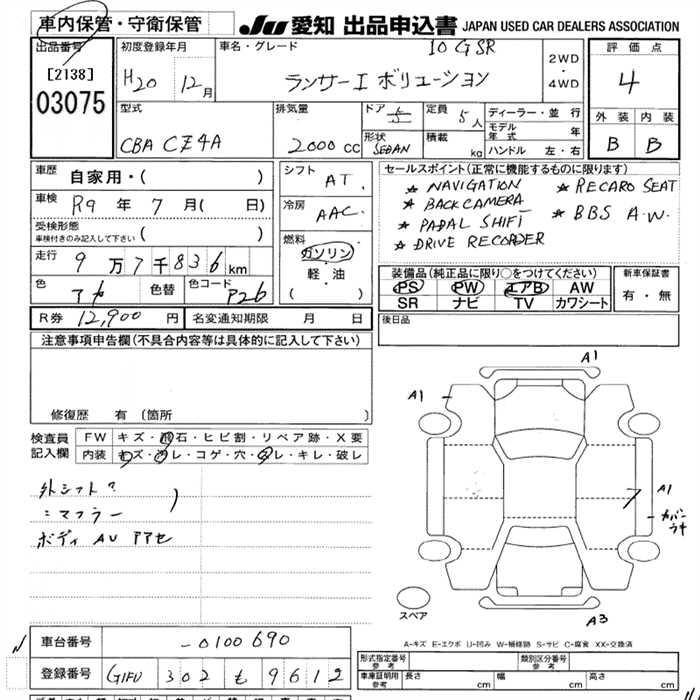 車内保管・守衛保管
JU 愛知 出品申込書 JAPAN USED CAR DEALERS ASSOCIATION
出品番号 初度登録年月 車名・グレード 10 GSR 2WD・4WD 評価点
[2138]
03075 H20 12月 ランサーエボリューション 4
型式 排気量 ドア 5 定員 5人 ディーラー・並行 外装 内装
CBA CZ4A 2000cc 形状 SEDAN 積載 kg モデル年式 年 B B
ハンドル 左・右
車歴 自家用・( ) シフト AT. セールスポイント(正常に機能するものに限ります)
★ NAVIGATION ★ RECARO SEAT
車検 R9年 7月(日) 冷房 AAC. ★ BACK CAMERA ★ BBS A.W.
受検形態 ( ) ★ PADAL SHIFT
車検付きのみ記入して下さい 燃料 ★ DRIVE RECORDER
走行 9万7千836km ガソリン
軽・油
( )
装備品(純正品に限り○をつけてください) 新車保証書
色 アカ 色替 色コード P26 PS PW エアB AW 有・無
SR ナビ TV カワシート
R券 12,900円 名変通知期限 月 日 後日品
注意事項申告欄(不具合内容等は具体的に記入して下さい)
修復歴 有 (箇所 )
検査員 FW キズ・飛石・ヒビ割・リペア跡・X要
記入欄 内装 キズ・汚レ・コゲ・穴・スレ・キレ・破レ
外シフト?
〃マフラー
ボディ AU アアセ
A1
A1
A1
カバーウキ
A3
スペア
A-キズ E-エクボ U-凹み W-補修跡 S-サビ C-腐食 XX-交換済
車台番号 -0100690
形式指定番号 参考 類別区分番号 参考
登録番号 GIFU 302 も 9612
車庫証明用 参考 長さ cm 幅 cm 高さ cm